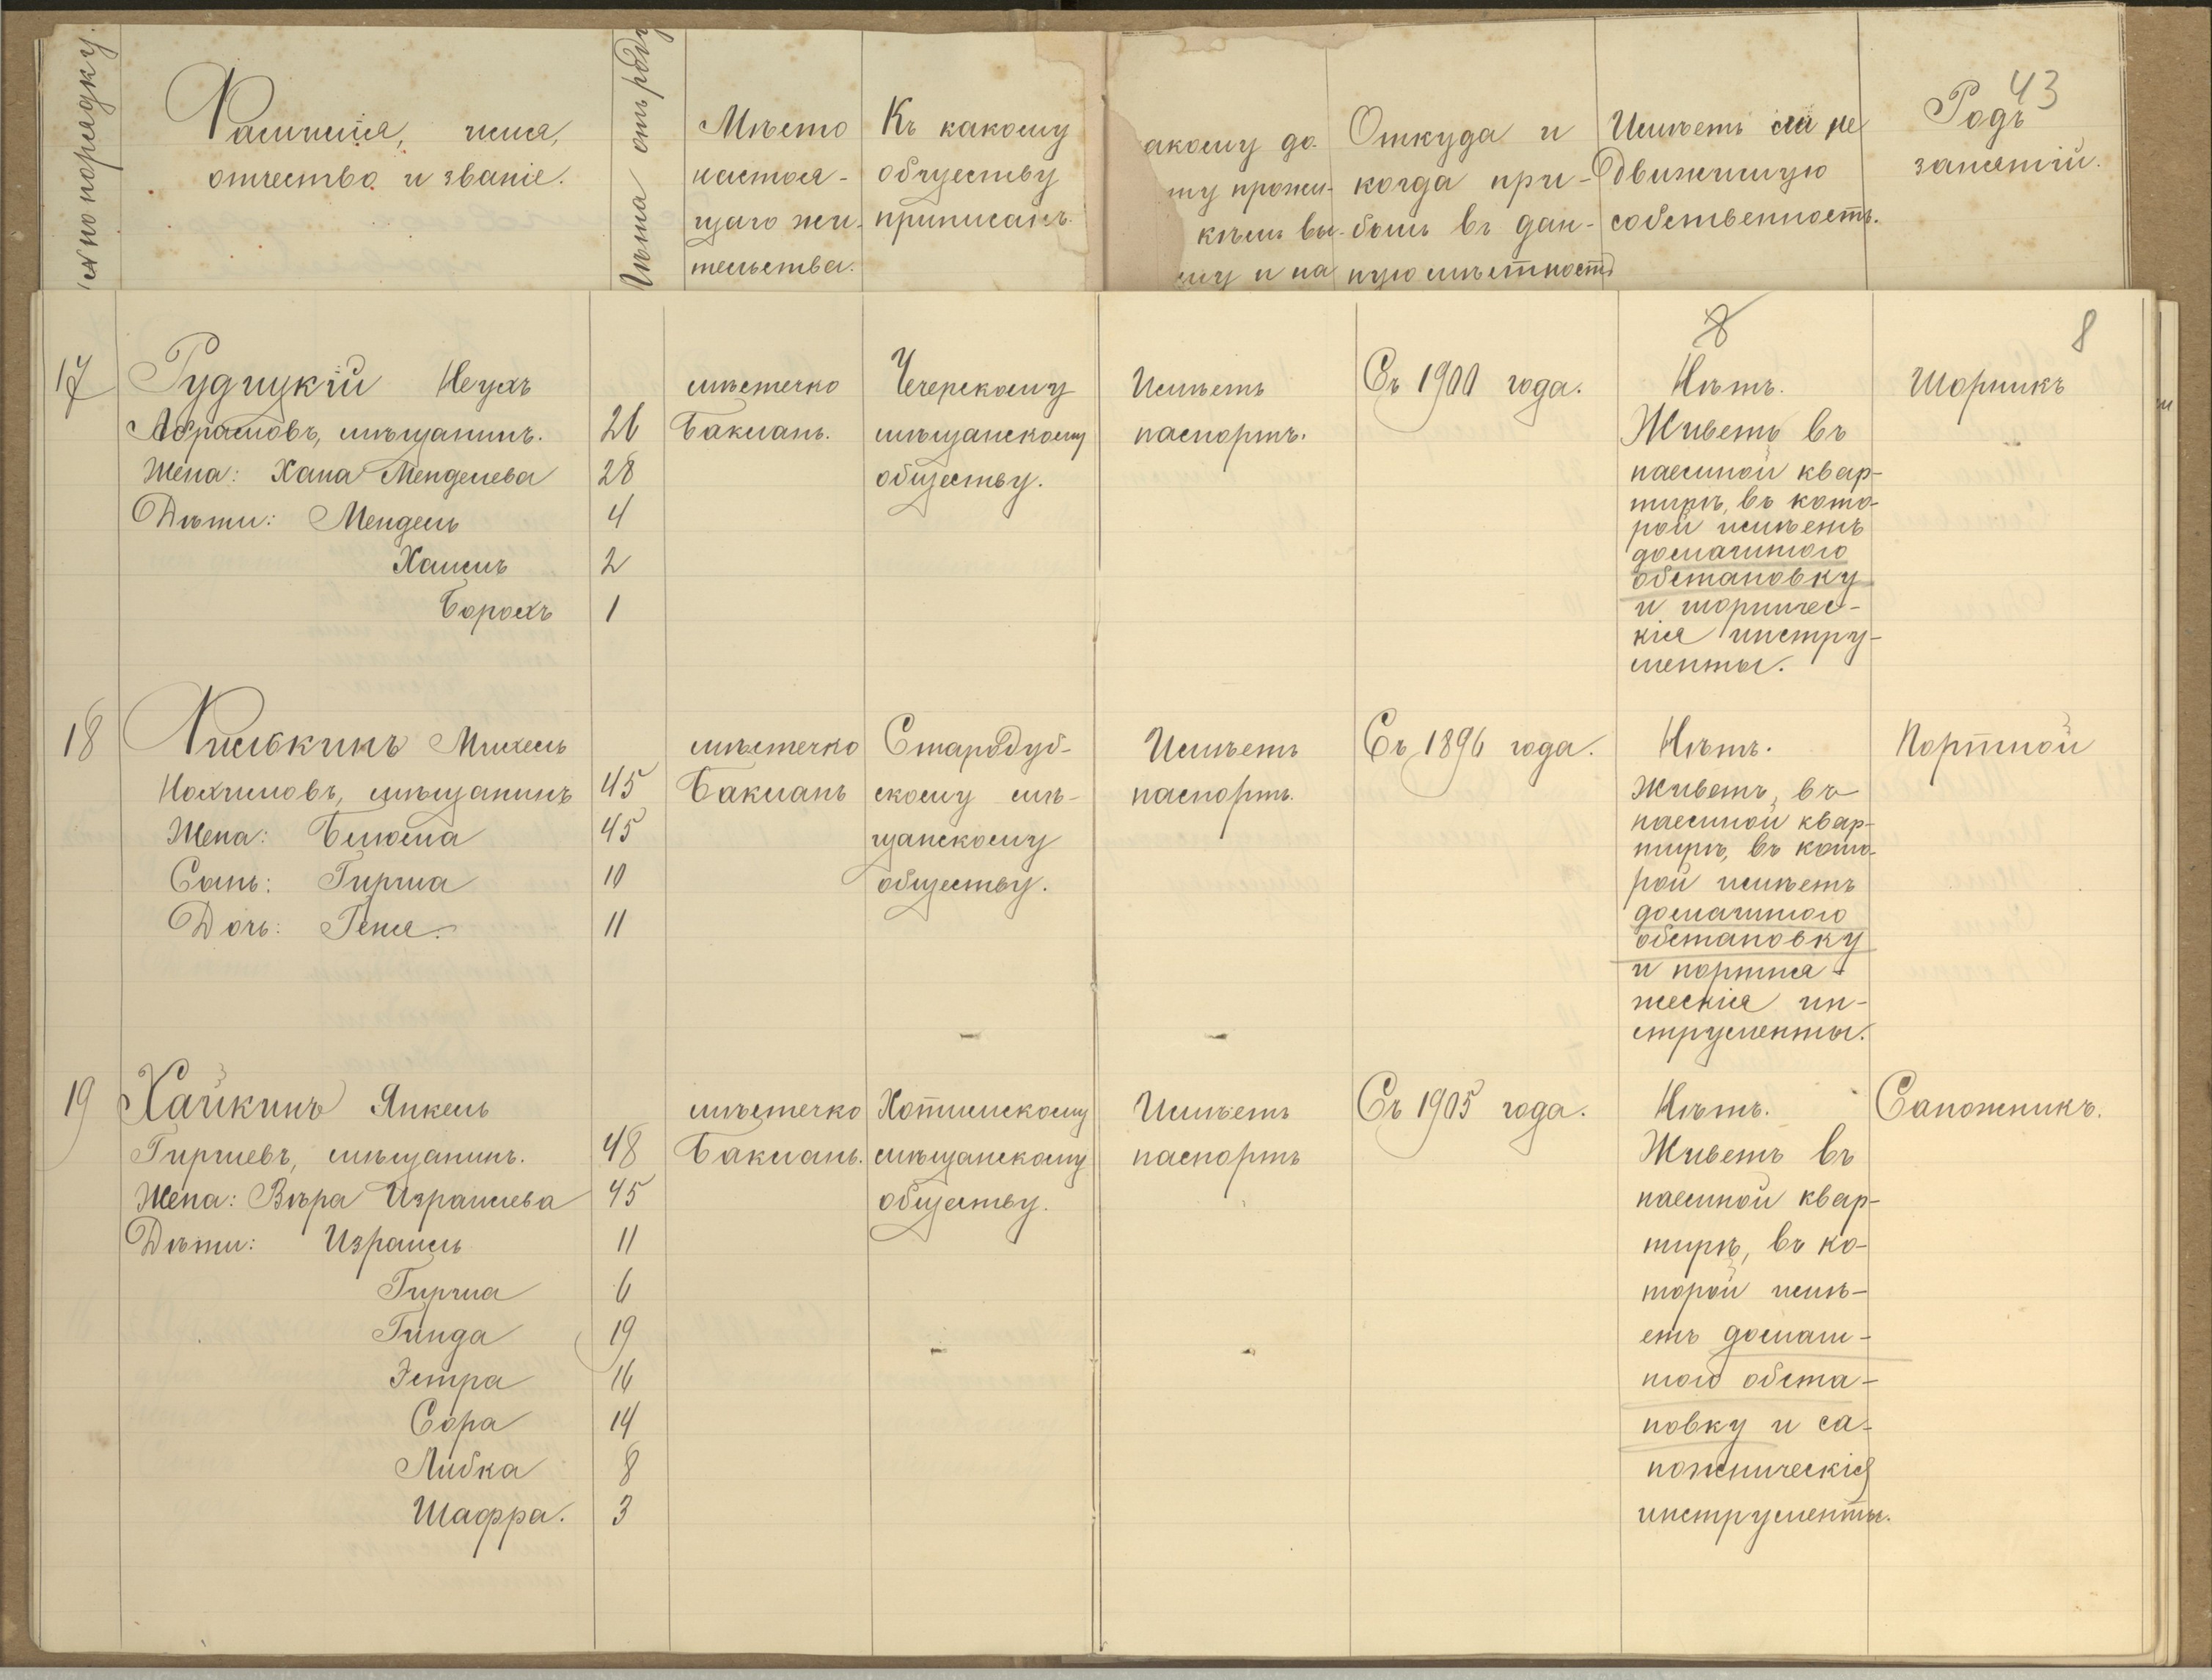 № по порядку.
Фамилія, имя,
отчество и званіе.
Лѣта отъ роду
Мѣсто
настоя-
щаго жи-
тельства.
Къ какому
обществу
приписанъ.
акому до
ту прожи-
кѣмъ вы-
му и на
Откуда и
когда при-
былъ въ дан-
ную мѣстность
Имѣетъ ли не
движимую
собственность.
43
Родъ
занятій.
8
8
17
Рудицкій Неухъ
Абрамовъ, мѣщанинъ. 26
Жена: Хана Менделева 28
Дѣти: Мендель 4
Хаимъ 2
Борохъ 1
мѣстечко
Баклань.
Чечерскому
мѣщанскому
обществу.
Имѣетъ
паспортъ.
Съ 1900 года.
Нѣтъ.
Живетъ въ
наемной квар-
тирѣ, въ кото-
рой имѣетъ
домашнюю
обстановку
и шорничес-
кія инстру-
менты.
Шорникъ
18
Хишкинъ Михель
Нохимовъ, мѣщанинъ 45
Жена: Блюма 45
Сынъ: Гирша 10
Дочь: Геня. 11
мѣстечко
Баклань
Стародуб-
скому мѣ-
щанскому
обществу.
Имѣетъ
паспортъ.
Съ 1896 года.
Нѣтъ.
Живетъ въ
наемной квар-
тирѣ, въ кото-
рой имѣетъ
домашнюю
обстановку
и портня-
жескія ин-
струменты.
Портной
19
Хайкинъ Янкель
Гиршевъ, мѣщанинъ. 48
Жена: Вѣра Израилева 45
Дѣти: Израиль 11
Гирша 6
Гинда 19
Эстра 16
Сора 14
Либка 8
Шафра. 3
мѣстечко
Баклань.
Хотимскому
мѣщанскому
обществу.
Имѣетъ
паспортъ
Съ 1905 года.
Нѣтъ.
Живетъ въ
наемной квар-
тирѣ, въ ко-
торой имѣ-
етъ домаш-
нюю обста-
новку и са-
пожническія
инструменты.
Сапожникъ.